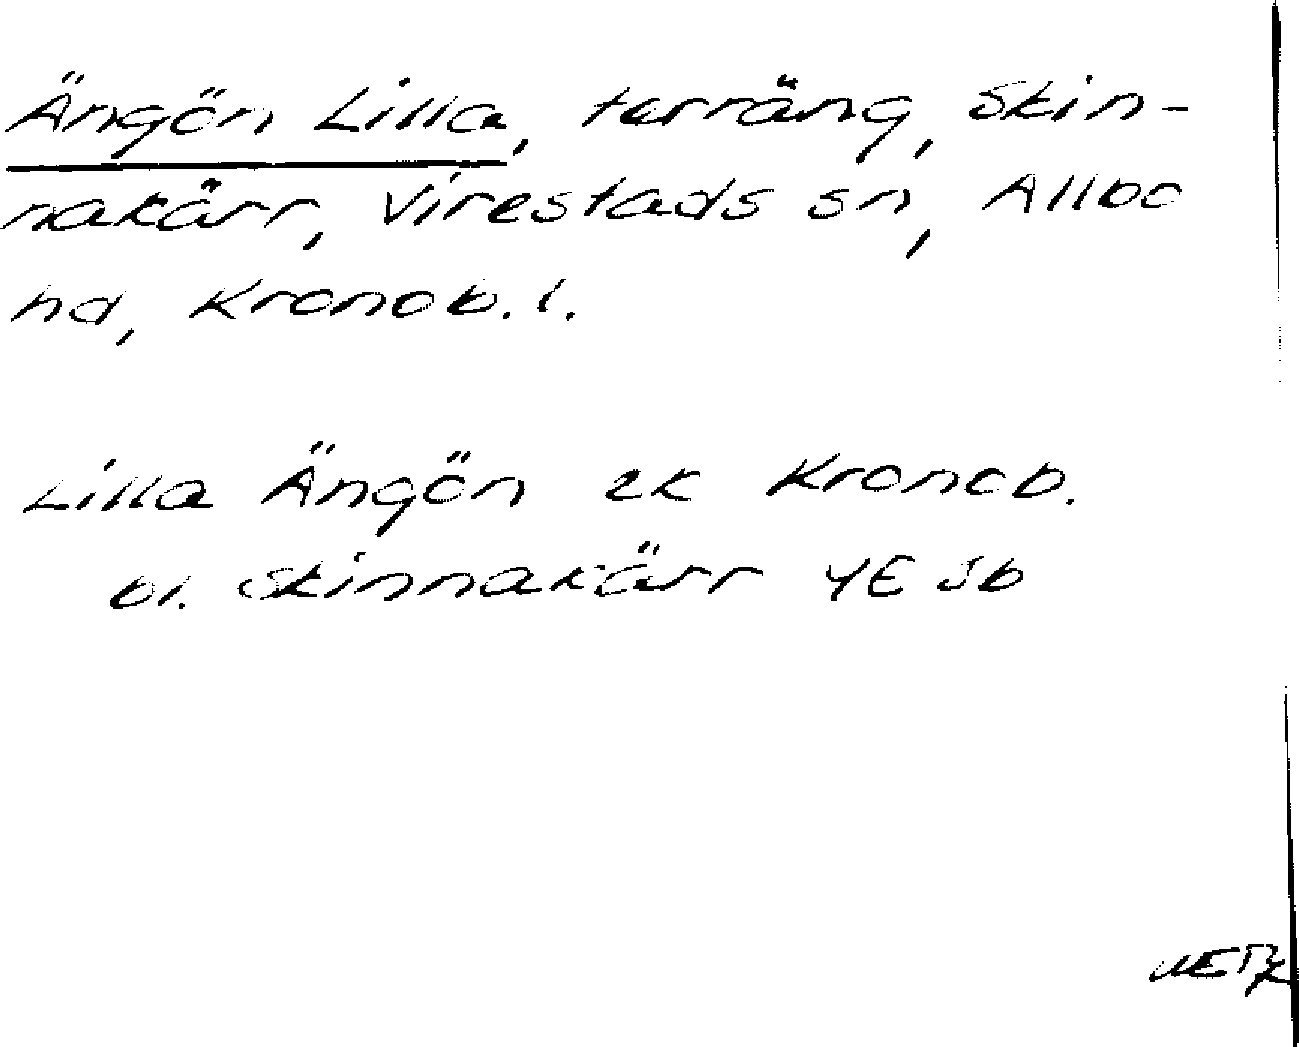 Ängön Lilla, terräng, Skin-
nakärr, Virestads sn, Allbo
hd, Kronob. l.
Lilla Ängön ek Kronob.
bl. Skinnakärr 4E Sb